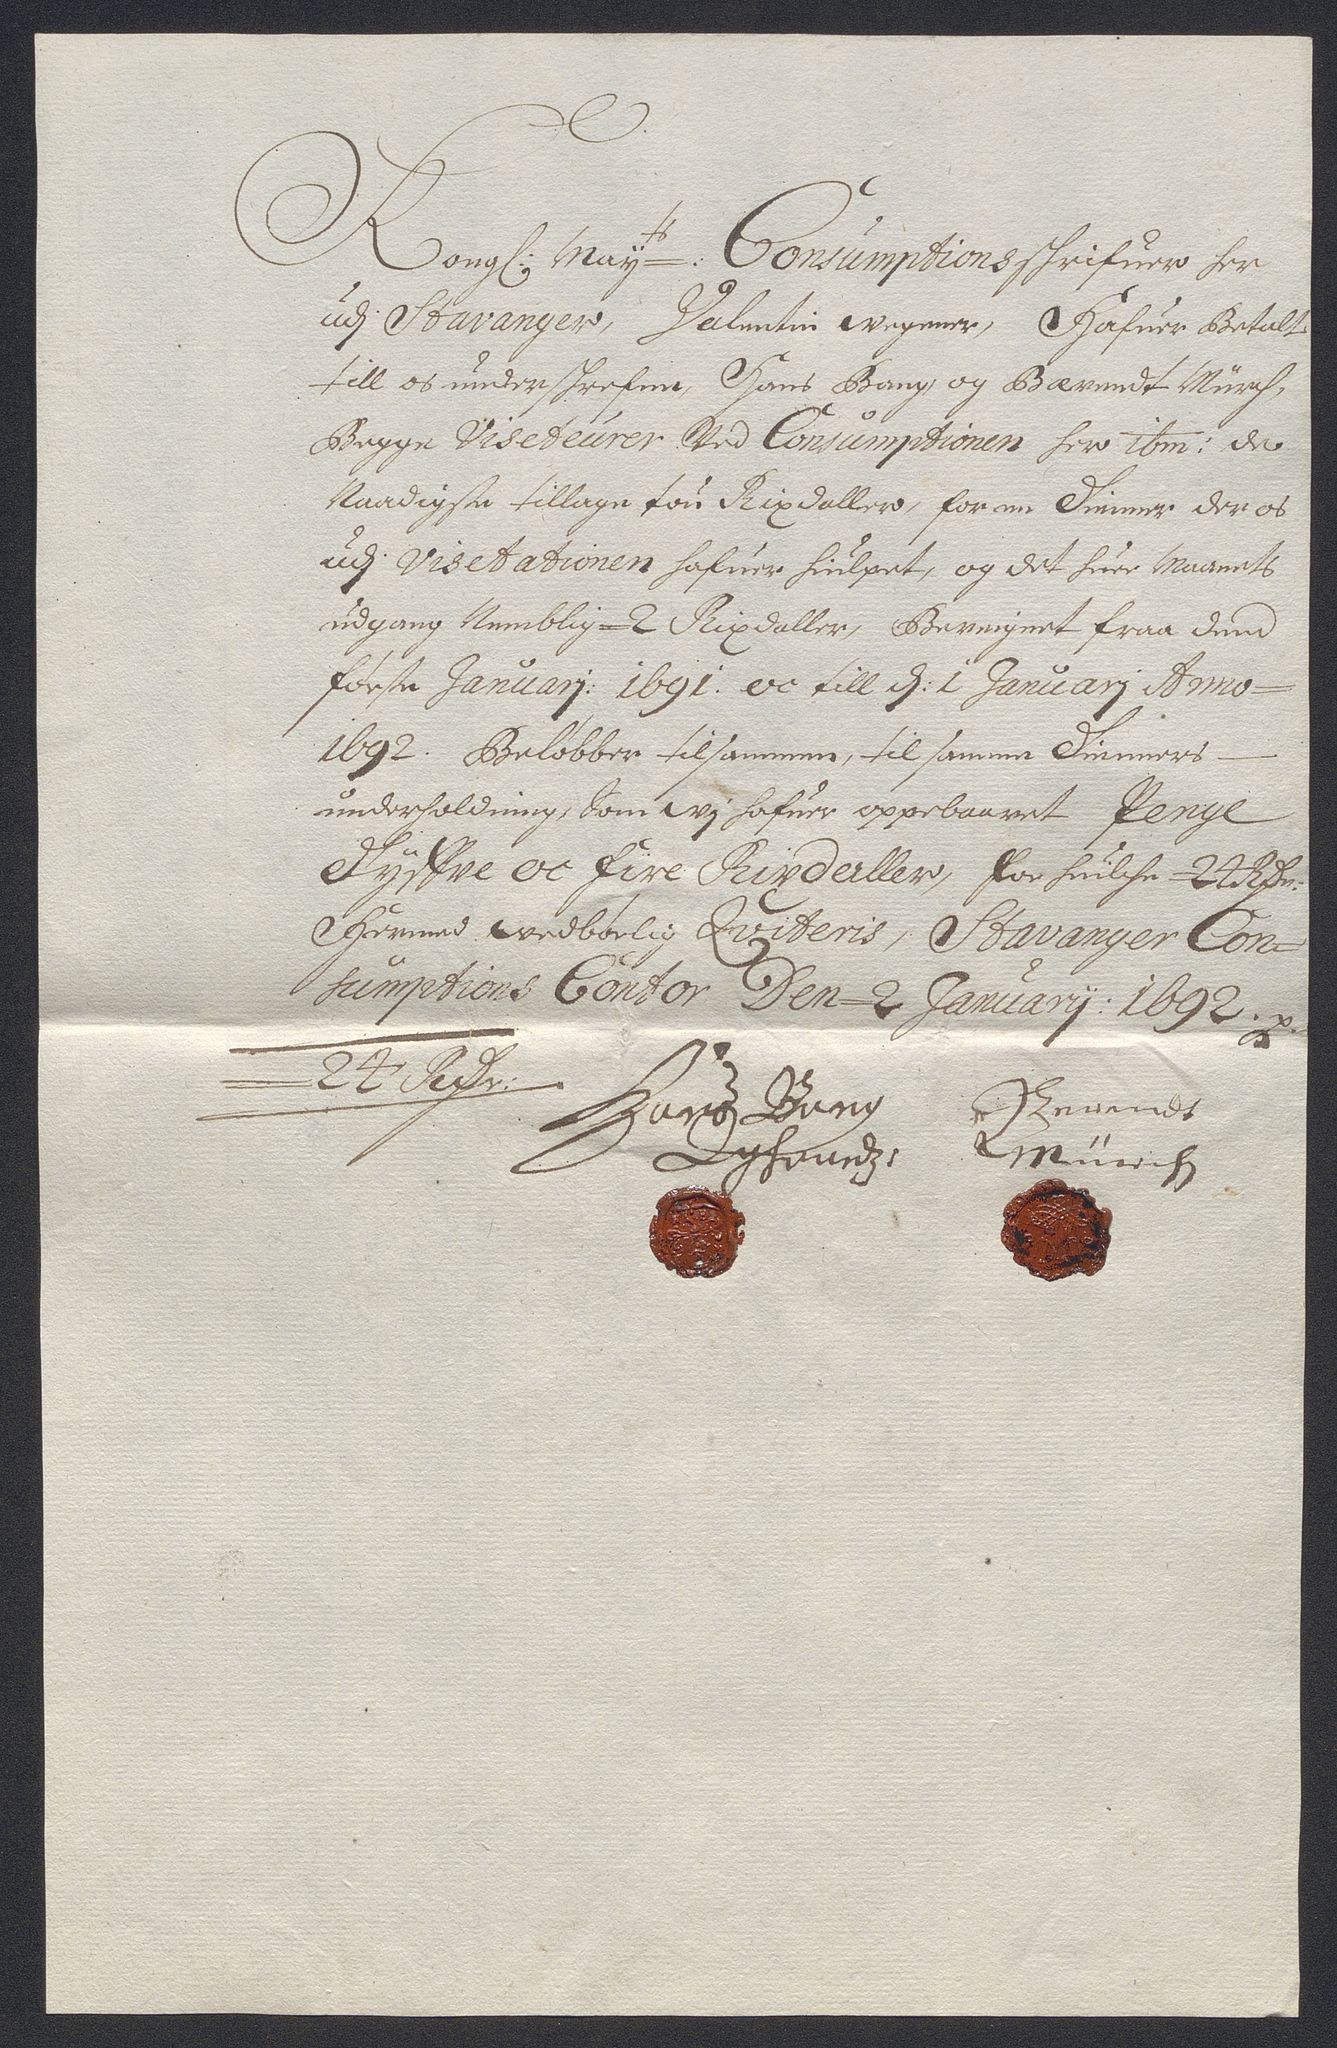 Kongl: May:ts Consumptions schrifuer her
udj Stavanger, Valentin Wegener, Hafuer Betalt
till os underschrefne, Hans Bang, og Bærendt Mürch,
Begge Viseteurer Ved Consumptionen her ibm: de
Naadigste tillagte tou Rixdaller, for en Tienner der os
udj Visetationen hafuer hiulpet, og det huer Maanets
udgang Nemblig 2 Rixdaller, Bereignet fraa dend
første Januarj: 1691. oc till d: 1 Januarj Anno
1692. Beløbber tilsammen, til samme Tienners
underholdning, Som vj hafuer oppebaaret Penge
Tyffve oc fire Rixdaller, for huilche 24 Rdr:
Hermed vedbørlig Qviteris, Stavanger Con=
sumptions Contor Den 2 Januarij: 1692.
24 Rdr:
Hans Bang Berendt
Eghaandz: Mürch